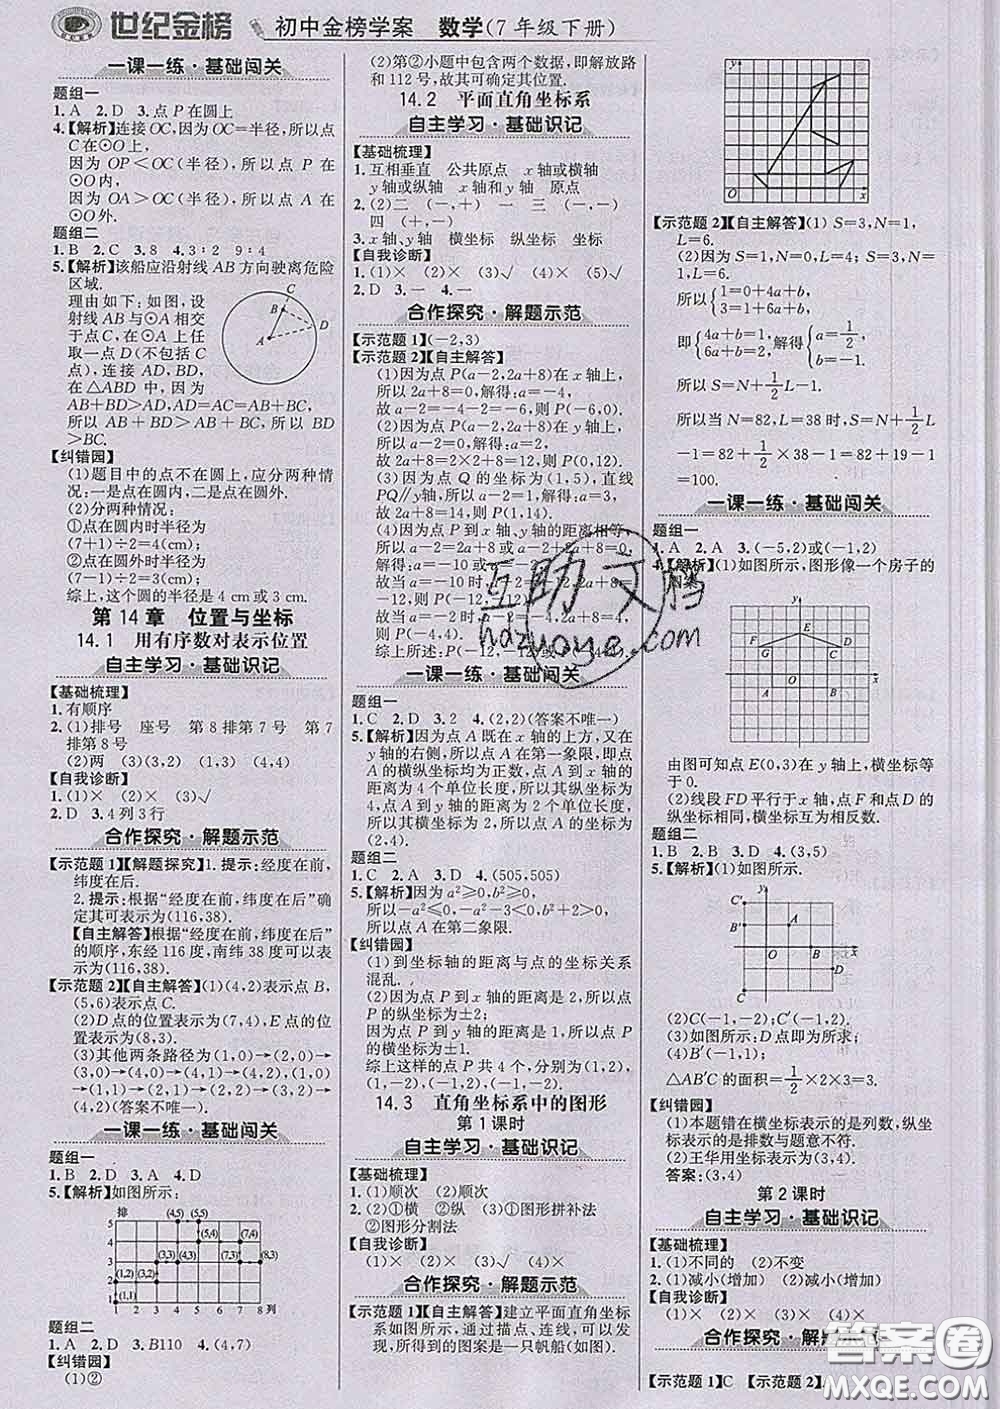 世纪金榜 初中金榜学案 数学(7年级下册)
一课一练·基础闯关
题组一
1.A 2.D 3.点P在圆上
4.【解析】连接OC,因为OC=半径,所以点
C在⊙O上,
因为OP<OC(半径),所以点P在
⊙O内,
因为OA>OC(半径),所以点A在
⊙O外.
题组二
1.B 2.C 3.8 4.3∶2 9∶4
5.【解析】该船应沿射线AB方向驶离危险
区域.
理由如下:如图,设
射线AB与⊙A相交
于点C,在⊙A上任
取一点D(不包括C
点),连接AD,BD,
在△ABD中,因为
AB+BD>AD,AD=AC=AB+BC,
所以AB+BD>AB+BC,所以BD
>BC.
【纠错园】
(1)题目中的点不在圆上,应分两种情
况:一是点在圆内,二是点在圆外.
(2)分两种情况:
①点在圆内时半径为
(7+1)÷2=4(cm);
②点在圆外时半径为
(7-1)÷2=3(cm);
综上,这个圆的半径是4 cm或3 cm.
第14章 位置与坐标
14.1 用有序数对表示位置
自主学习·基础识记
【基础梳理】
1.有顺序
2.(1)排号 座号 第8排第7号 第7
排第8号
(2)两 (3)(3,2) (1,3) (4,4)
【自我诊断】
1.(1)× (2)× (3)√
2.D 3.4列3行
合作探究·解题示范
【示范题1】【解题探究】1.提示:经度在前,
纬度在后.
2.提示:根据“经度在前,纬度在后”确
定其可表示为(116,38).
【自主解答】根据“经度在前,纬度在后”
的顺序,东经116度,南纬38度可以表
示为(116,38).
【示范题2】【自主解答】(1)(4,2)表示点B,
(5,6)表示点C.
(2)D点的位置表示为(7,4),E点的位
置表示为(8,3).
(3)其他两条路径为(1,0)→(2,0)→
(3,0)→(4,0)→(4,1)→(4,2),(1,0)
→(1,1)→(2,1)→(2,2)→(3,2)→
(4,2)(答案不唯一).
一课一练·基础闯关
题组一
1.B 2.D 3.A 4.D
5.【解析】如图所示:
排 (4,5) (5,5) (5,4) (7,4) (3,3) (4,3) (7,3) (8,3) (1,2) (3,2) (1,1)
1 2 3 4 5 6 7 8 列
题组二
1.A 2.D 3.B110 4.(4,7)
【纠错园】
(1)②
(2)第②小题中包含两个数据,即解放路
和112号,故其可确定其位置.
14.2 平面直角坐标系
自主学习·基础识记
【基础梳理】
1.互相垂直 公共原点 x轴或横轴
y轴或纵轴 x轴和y轴 原点
2.(2)二 (-,+) 一 三 (-,-)
四 (+,-)
3.x轴、y轴 横坐标 纵坐标 坐标
【自我诊断】
1.(1)× (2)× (3)√ (4)√ (5)√
2.D 3.一 4.一
合作探究·解题示范
【示范题1】(-2,3)
【示范题2】【自主解答】
(1)因为点P(a-2,2a+8)在x轴上,
所以2a+8=0,解得:a=-4,
故a-2=-4-2=-6,则P(-6,0).
(2)因为点P(a-2,2a+8)在y轴上,
所以a-2=0,解得:a=2,
故2a+8=2×2+8=12,则P(0,12).
(3)因为点Q的坐标为(1,5),直线
PQ∥y轴,所以a-2=1,解得:a=3,
故2a+8=14,则P(1,14).
(4)因为点P到x轴、y轴的距离相等,
所以a-2=2a+8或a-2+2a+8=0,
解得:a=-10或a=-2,
故当a=-10时,a-2=-12,
2a+8=-12,则P(-12,-12);
故当a=-2时,a-2=-4,2a+8=4,
则P(-4,4).
综上所述:P(-12,-12),(-4,4).
一课一练·基础闯关
题组一
1.C 2.D 3.2 4.(2,2)(答案不唯一)
5.【解析】因为点A既在x轴的上方,又在
y轴的右侧,所以点A在第一象限,即点
A的横纵坐标均为正数,点A到x轴的
距离为4个单位长度,所以其纵坐标为
4,点A到y轴的距离为2个单位长度,
所以其横坐标为2,所以点A的坐标为
(2,4).
题组二
1.C 2.C 3.A 4.(505,505)
5.【解析】因为a²≥0,b²≥0,
所以-a²≤0,-a²-3<0,b²+2>0,
所以点A在第二象限.
【纠错园】
(1)到坐标轴的距离与点的坐标关系
混乱.
(2)因为点P到x轴的距离是2,所以点
P的纵坐标为±2;
因为点P到y轴的距离是1,所以点P
的横坐标为±1.
综上这样的点P共4个,分别为(1,2),
(1,-2),(-1,2),(-1,-2).
14.3 直角坐标系中的图形
第1课时
自主学习·基础识记
【基础梳理】
1.(1)顺次 (2)顺次
2.(2)①横 ②纵 (3)①图形拼补法
②图形分割法
【自我诊断】
(1)× (2)× (3)√ (4)×
合作探究·解题示范
【示范题1】【自主解答】建立平面直角坐标
系如图所示,通过描点、连线,可以发现,
所得到的图案是一只帆船(如图).
y O x
【示范题2】【自主解答】(1) S=3,N=1,
L=6.
(2)因为S=1,N=0,L=4,
S=3,N=1,L=6,
所以{1=0+4a+b, 3=1+6a+b,
即{4a+b=1, 6a+b=2, 解得{a=1/2, b=-1.
所以S=N+1/2L-1.
所以当N=82,L=38时,S=N+1/2L
-1=82+1/2×38-1=82+19-1
=100.
一课一练·基础闯关
题组一
1.A 2.A 3.(-5,2)或(-1,2)
4.【解析】(1)如图所示,图形像一个房子的
图案.
y E F D G C A O B x
由图可知点E(0,3)在y轴上,横坐标等
于0.
(2)线段FD平行于x轴,点F和点D的
纵坐标相同,横坐标互为相反数.
题组二
1.B 2.B 3.D 4.(3,5)
5.【解析】(1)如图所示:
C′ y B′ A O B x D C
(2)C(-1,-2);C′(-1,2).
(3)如图所示:D点即为所求;
(4)B′(-1,1).
△AB′C的面积=1/2×2×2=2.
【纠错园】
(1)本题错在横坐标表示的是列数,纵坐
标表示的是排数与题意不符.
(2)王华用数对表示为(3,4).
答案:(3,4)
第2课时
自主学习·基础识记
【基础梳理】
1.(1)不同的 (2)不变
2.(1)减小(增加) (2)减小(增加)
【自我诊断】
(1)× (2)× (3)√
合作探究·解题示范
【示范题1】C 【示范题2】
互助文档
hdzuoye.com
答案圈
MXQE.COM